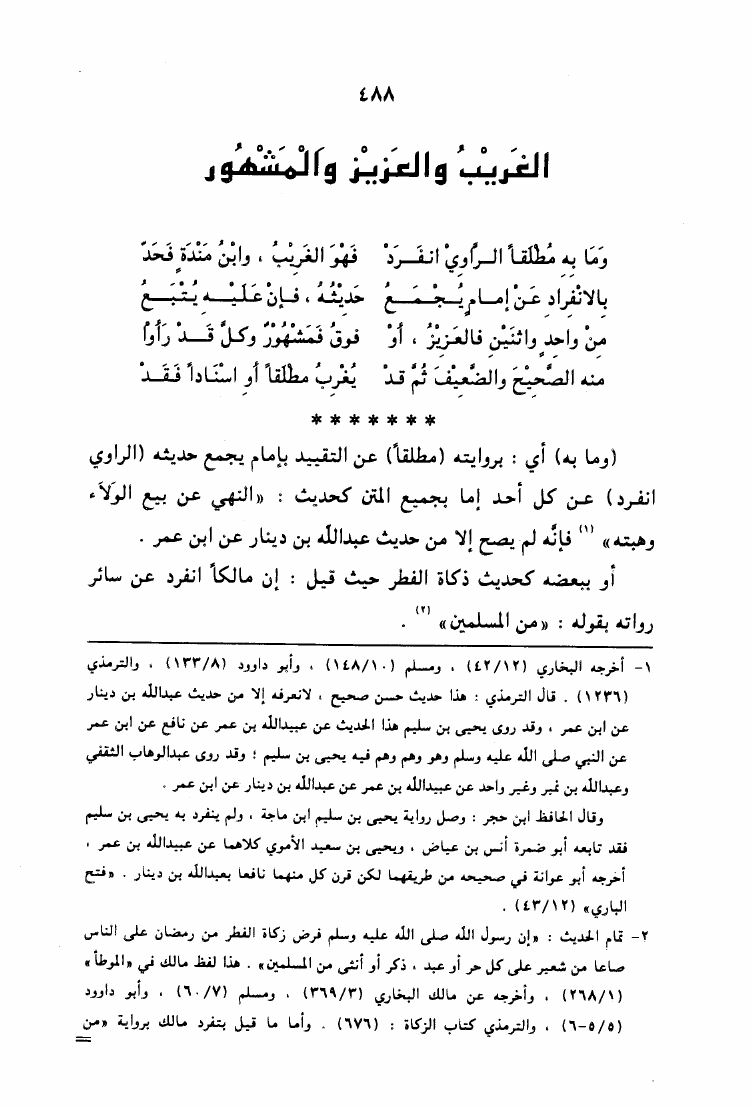 ٤٨٨
الغَرِيْبُ والعَزِيْزِ وَالْمَشْهُور
وَمَا بِه مُطْلَقاً الـرَّاوِيْ انـفَـرَدْ فَهْوَ الغَرِيْبُ ، وابْنُ مَنْدَةٍ فَحَدّْ
بالانْفِرادِ عَنْ إمـامٍ يُـجْـمَـعُ حَدِيْثُهُ ، فـإنْ عَلَيْـــهِ يُتْبَــعُ
مِنْ واحِدٍ واثنَيْنِ فالعَزِيْزُ ، أوْ فوقُ فَمَشْهُورٌ وكلٌّ قَــدْ رَأَوْا
منه الصَّحِيْحَ والضَّعِيْفَ ثُمَّ قدْ يُغْرِبُ مطلقاً أو اسْنَاداً فَـقَـدْ
* * * * * * *
(وما به) أي : بروايته (مطلقاً) عن التقييد بإمام يجمع حديثه (الراوي
انفرد) عن كل أحد إما بجميع المتن كحديث : «النهي عن بيع الوَلَاء
وهبته» (١) فإنَّه لم يصح إلا من حديث عبدالله بن دينار عن ابن عمر .
أو ببعضه كحديث زكاة الفطر حيث قيل : إن مالكاً انفرد عن سائر
رواته بقوله : «من المسلمين» (٢) .
١- أخرجه البخاري (٤٢/١٢) ، ومسلم (١٤٨/١٠) ، وأبو داوود (١٣٣/٨) ، والترمذي
(١٢٣٦) . قال الترمذي : هذا حديث حسن صحيح ، لانعرفه إلا من حديث عبدالله بن دينار
عن ابن عمر ، وقد روى يحيى بن سليم هذا الحديث عن عبيدالله بن عمر عن نافع عن ابن عمر
عن النبي صلى الله عليه وسلم وهو وهم وهم فيه يحيى بن سليم ؛ وقد روى عبدالوهاب الثقفي
وعبدالله بن نمير وغير واحد عن عبيدالله بن عمر عن عبدالله بن دينار عن ابن عمر .
وقال الحافظ ابن حجر : وصل رواية يحيى بن سليم ابن ماجة ، ولم ينفرد به يحيى بن سليم
فقد تابعه أبو ضمرة أنس بن عياض ، ويحيى بن سعيد الأموي كلاهما عن عبيدالله بن عمر ،
أخرجه أبو عوانة في صحيحه من طريقهما لكن قرن كل منهما نافعا بعبدالله بن دينار . «فتح
الباري» (٤٣/١٢) .
٢- تمام الحديث : «إن رسول الله صلى الله عليه وسلم فرض زكاة الفطر من رمضان على الناس
صاعا من شعير على كل حر أو عبد ، ذكر أو أنثى من المسلمين» . هذا لفظ مالك في «الموطأ»
(٢٦٨/١) ، وأخرجه عن مالك البخاري (٣٦٩/٣) ، ومسلم (٦٠/٧) ، وأبو داوود
(٥/٥-٦) ، والترمذي كتاب الزكاة : (٦٧٦) . وأما ما قيل بتفرد مالك برواية «من
=